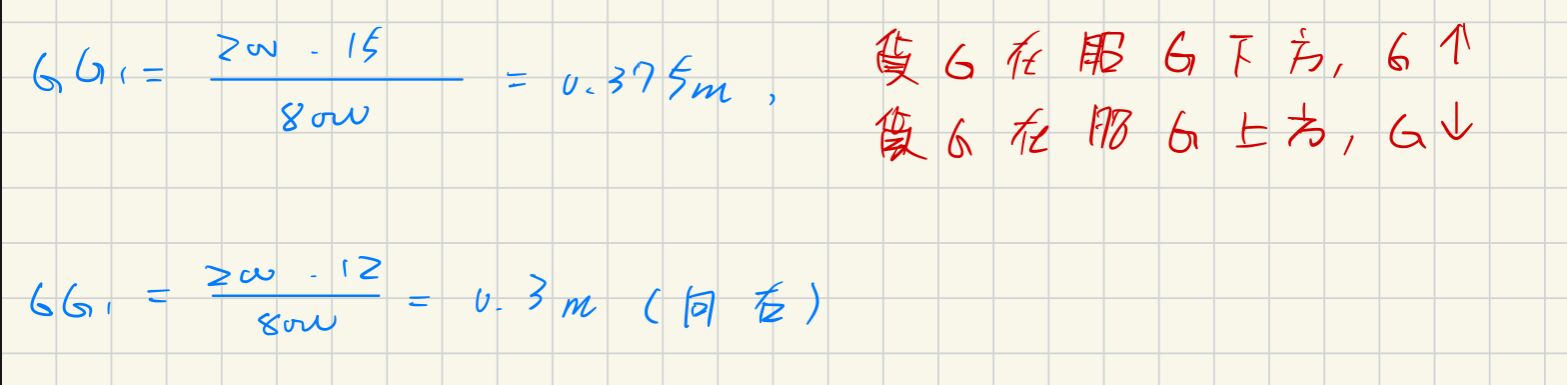 GG₁ = 200 · 15 / 8000 = 0.375m,
貨 G 在 船 G 下方, G ↑
貨 G 在 船 G 上方, G ↓
GG₁ = 200 · 12 / 8000 = 0.3 m (向右)